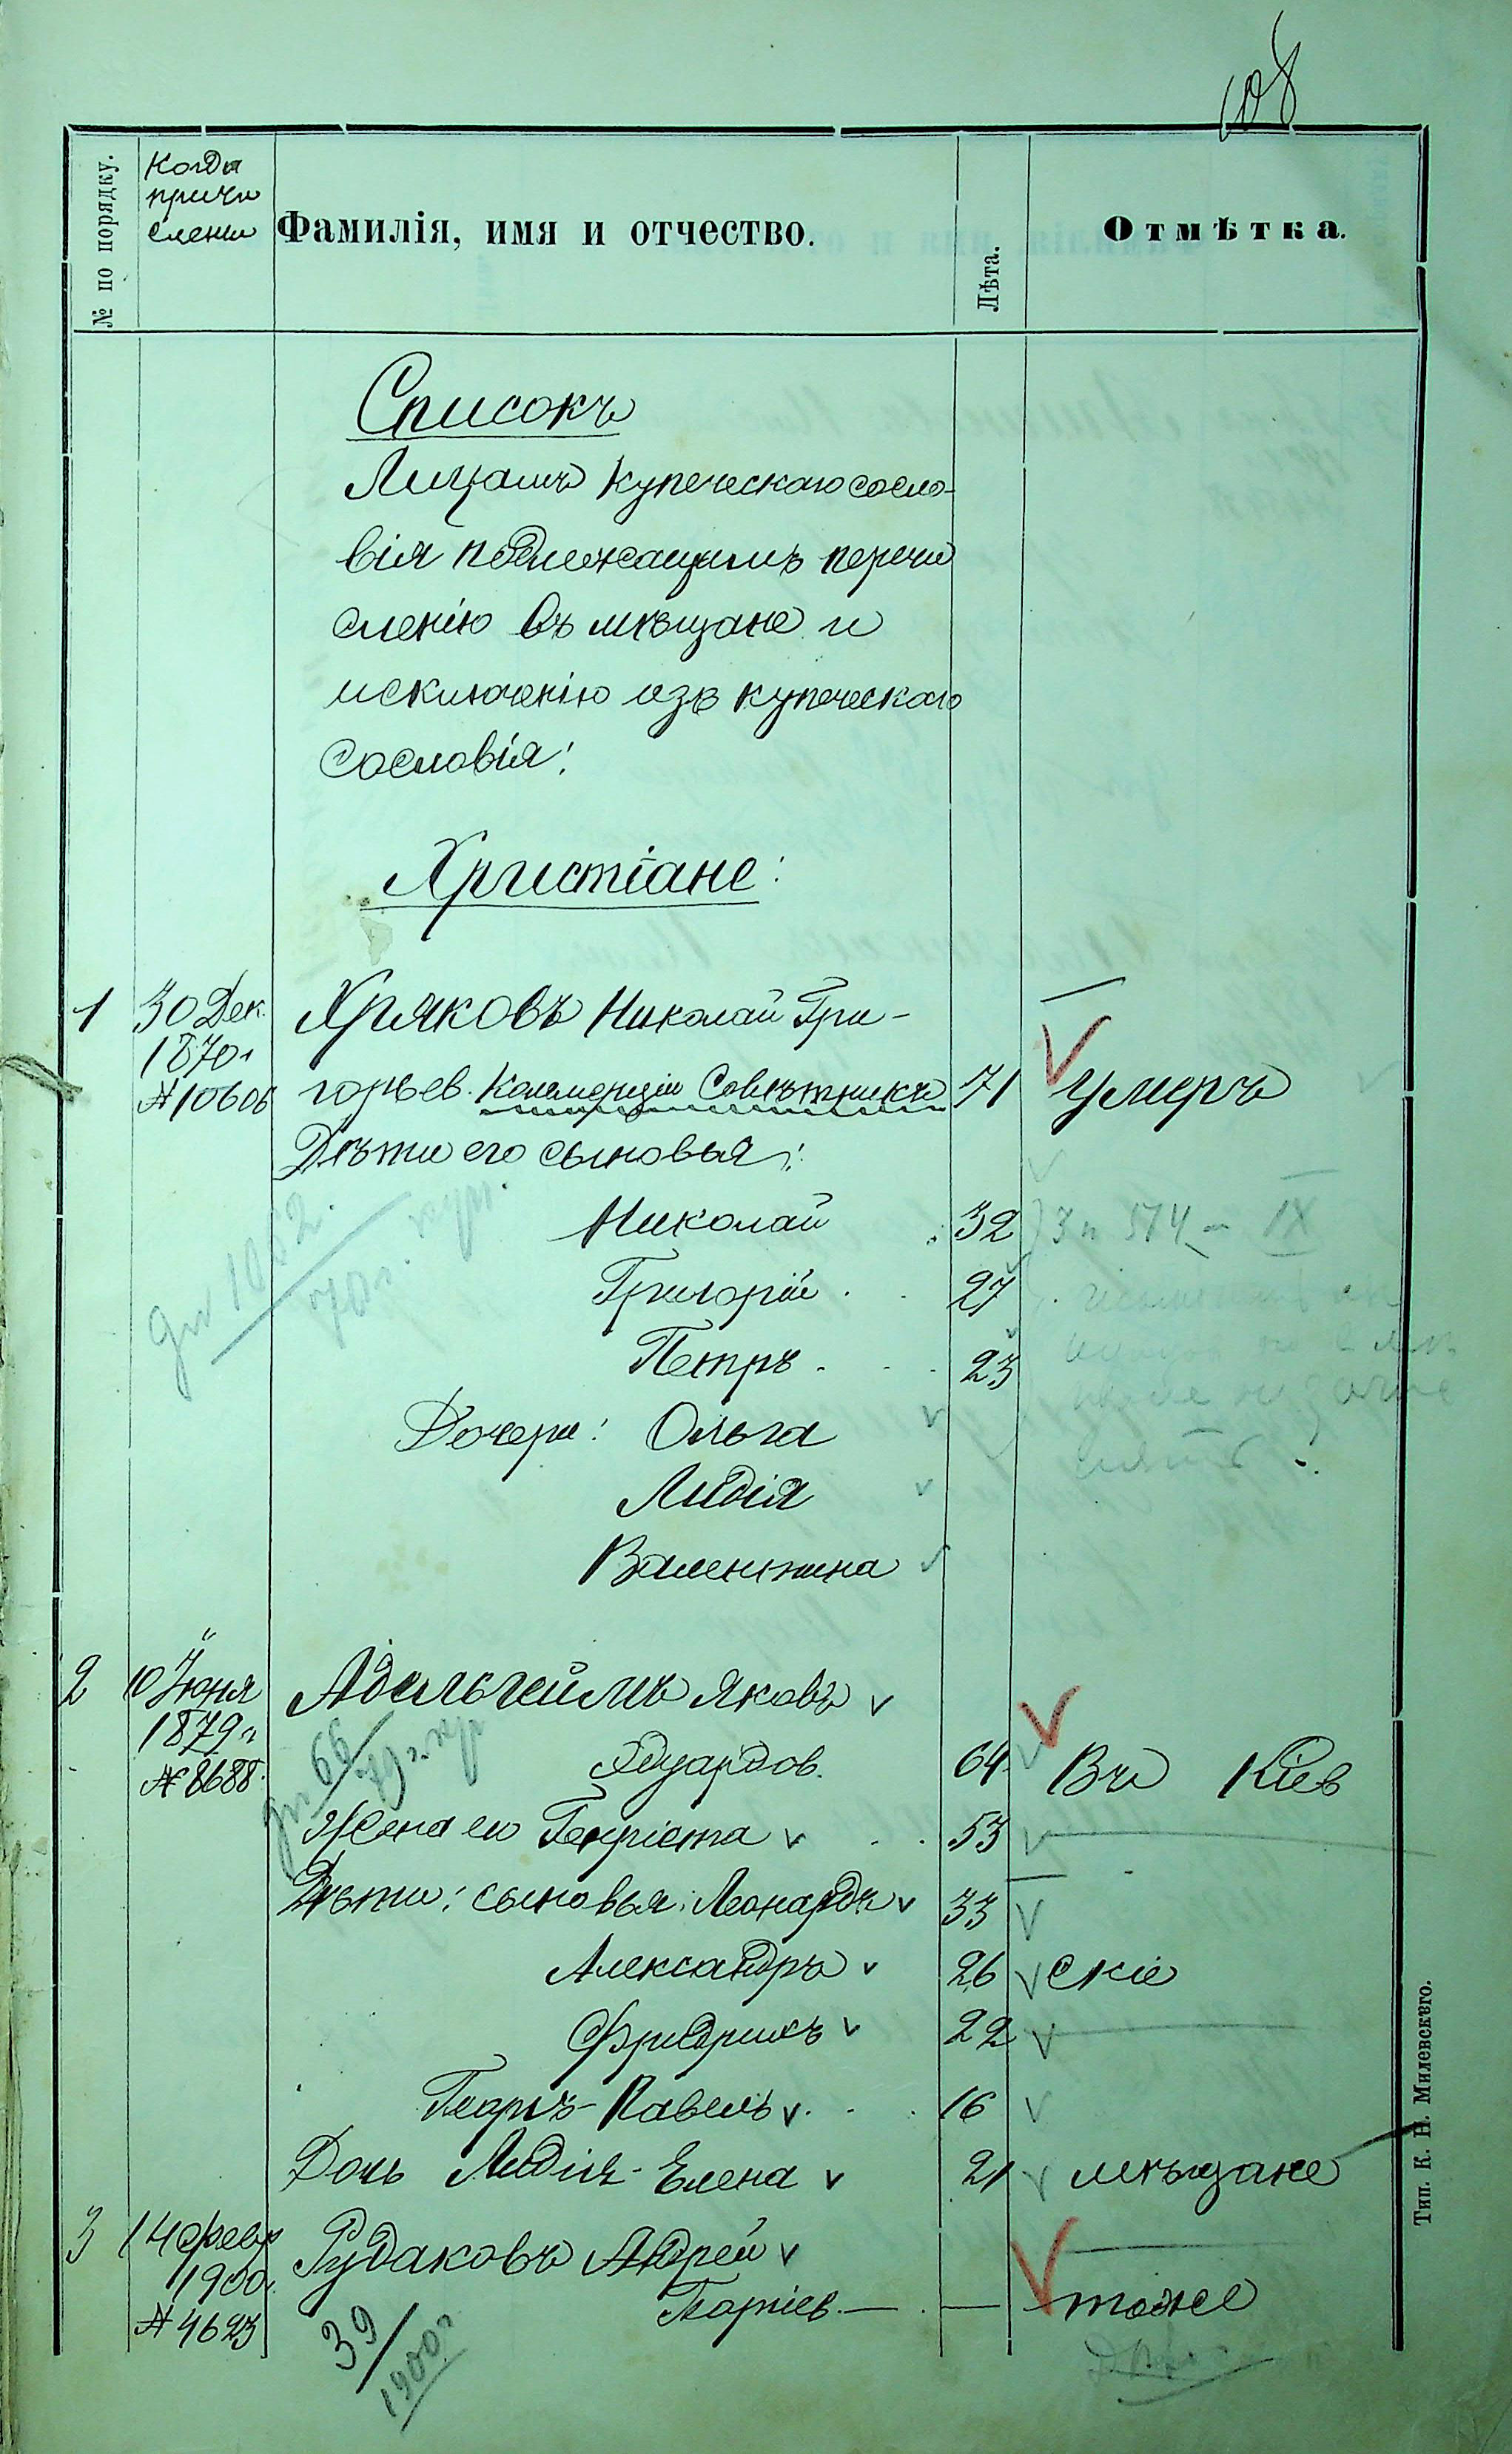 108
№ по порядку.
Когда
причи
слены
Фамилія, имя и отчество.
Лѣта.
Отмѣтка.
Списокъ
Лицамъ купеческаго сосло-
вія подлежащимъ перечи
сленію въ мѣщане и
исключенію изъ купеческаго
сословія:
Христіане:
1 30 Дек. Хряковъ Николай Гри-
1870 г
№ 10606 горьев. Коммерціи Совѣтникъ 71 умеръ
Дѣти его сыновья:
Николай 32 514 - IX
Григорій 27
Петръ 23
Дочери: Ольга
Лидія
Валентина
2 10 Іюня Адельгеймъ Яковъ
1879 г
№ 8688 Эдуардов. 64 Въ Кіев
Жена его Генріета 53
Дѣти: сыновья: Леонардъ 33
Александръ 26 скіе
Фридрихъ 22
Георгъ-Павелъ 16
Дочь Лидія-Елена 21 мѣщане
3 14 февр Рудаковъ Андрей
1900 г.
№ 4623 Георгіев. — — тоже
39/1900 г
Тип. К. Н. Милевскего.